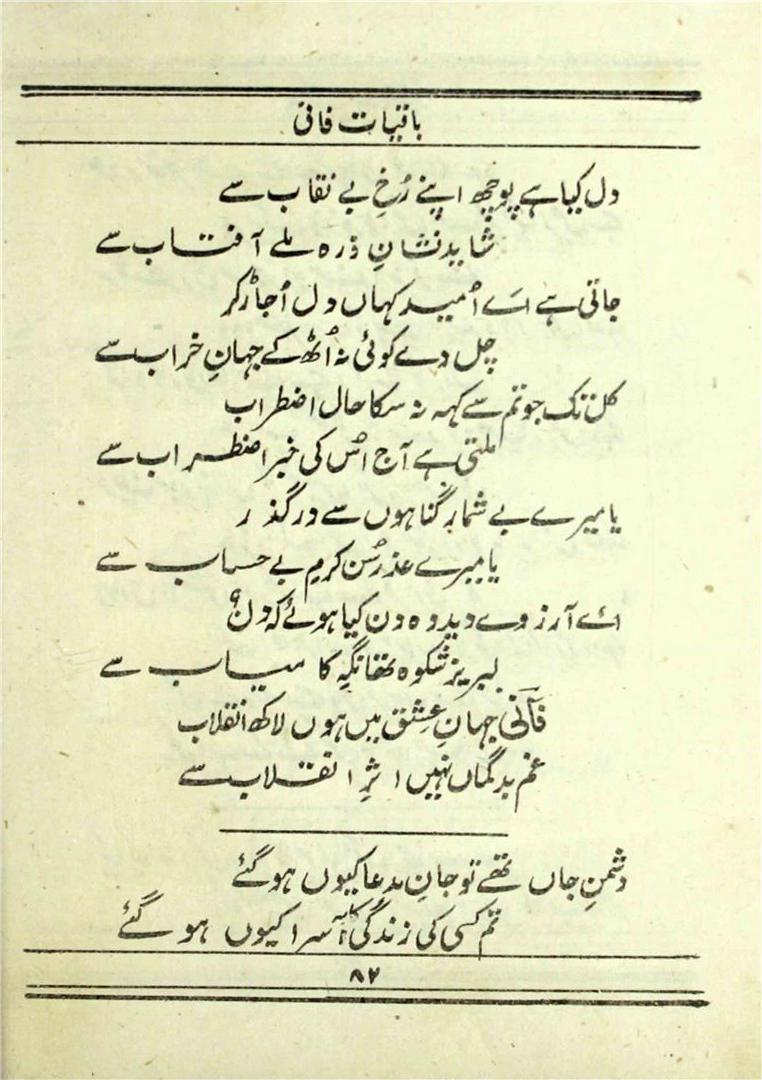 باقیات فانی
دل کیا ہے پوچھ اپنے رُخِ بے نقاب سے
شاید نشانِ ذرہ ملے آفتاب سے
جاتی ہے اے اُمید کہاں دل اُجاڑ کر
چل دے کوئی نہ اُٹھ کے جہانِ خراب سے
کل تک جو تم سے کہہ نہ سکا حال اضطراب
ملتی ہے آج اُس کی خبر اضطراب سے
یا میرے بے شمار گناہوں سے درگذر
یا میرے عذر سُن کرمِ بے حساب سے
اے آرزوے دید وہ دن کیا ہوئے کہ دل؟
لبریز شکوہ تھا نگہِ کامیاب سے
فانؔی جہانِ عِشق میں ہوں لاکھ انقلاب
غم بدگماں نہیں اثرِ انقلاب سے
دشمنِ جاں تھے تو جانِ مدعا کیوں ہو گئے
تم کسی کی زندگی کا آسرا کیوں ہو گئے
۸۷